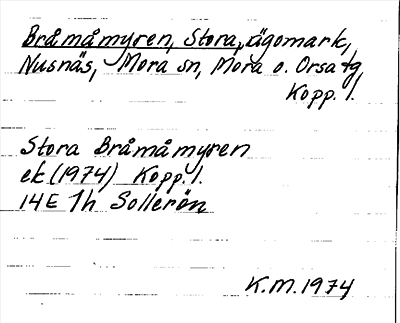 Bråmåmyren, Stora, ägomark,
Nusnäs, Mora sn, Mora o. Orsa tg,
Kopp. l.
Stora Bråmåmyren
ek (1974) Kopp. l.
14E 1h Sollerön
K.M. 1974